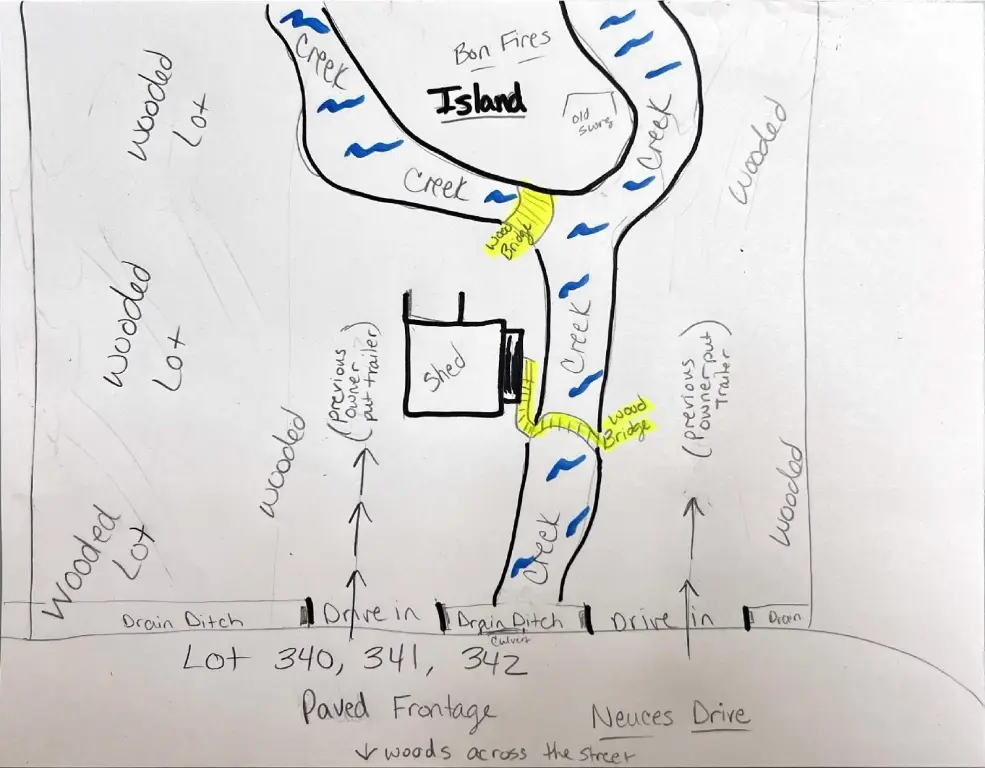 Bon Fires
Island
old
swing
Creek
Creek
Creek
Wooded
Lot
Wooded
Wood
Bridge
Wooded
Lot
Creek
Shed
(previous
owner
put trailer)
(previous
owner put
Trailer)
Wood
Bridge
Wooded
Wooded
Wooded
Lot
Creek
Drain Ditch
Drive in
Drain Ditch
Culvert
Drive in
Drain
Lot 340, 341, 342
Paved Frontage
Neuces Drive
↓ woods across the street